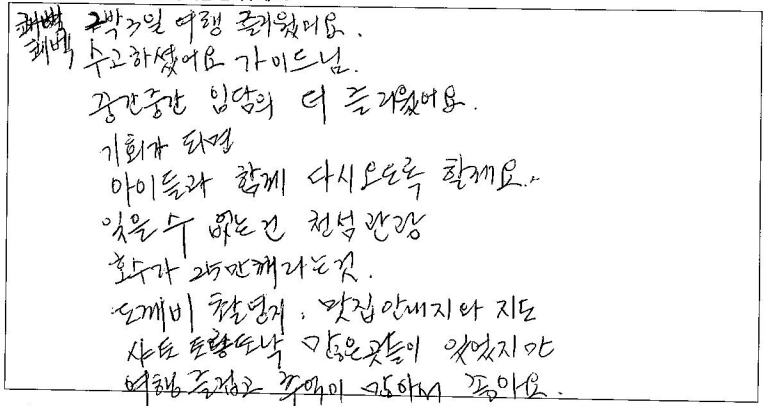 퀘백 2박3일 여행 즐거웠어요.
퀘벡 수고하셨어요 가이드님.
중간중간 입담의 더 즐거웠어요.
기회가 되면
아이들과 함께 다시오도록 할께요..
잊을 수 없는건 천섬관광
호수가 25만깨라는것.
도깨비 촬영지, 맛집안내지와 지도
샤또 프랑또낙 같은곳들이 있었지만
여행즐겁고 추억이 많아서 좋아요.